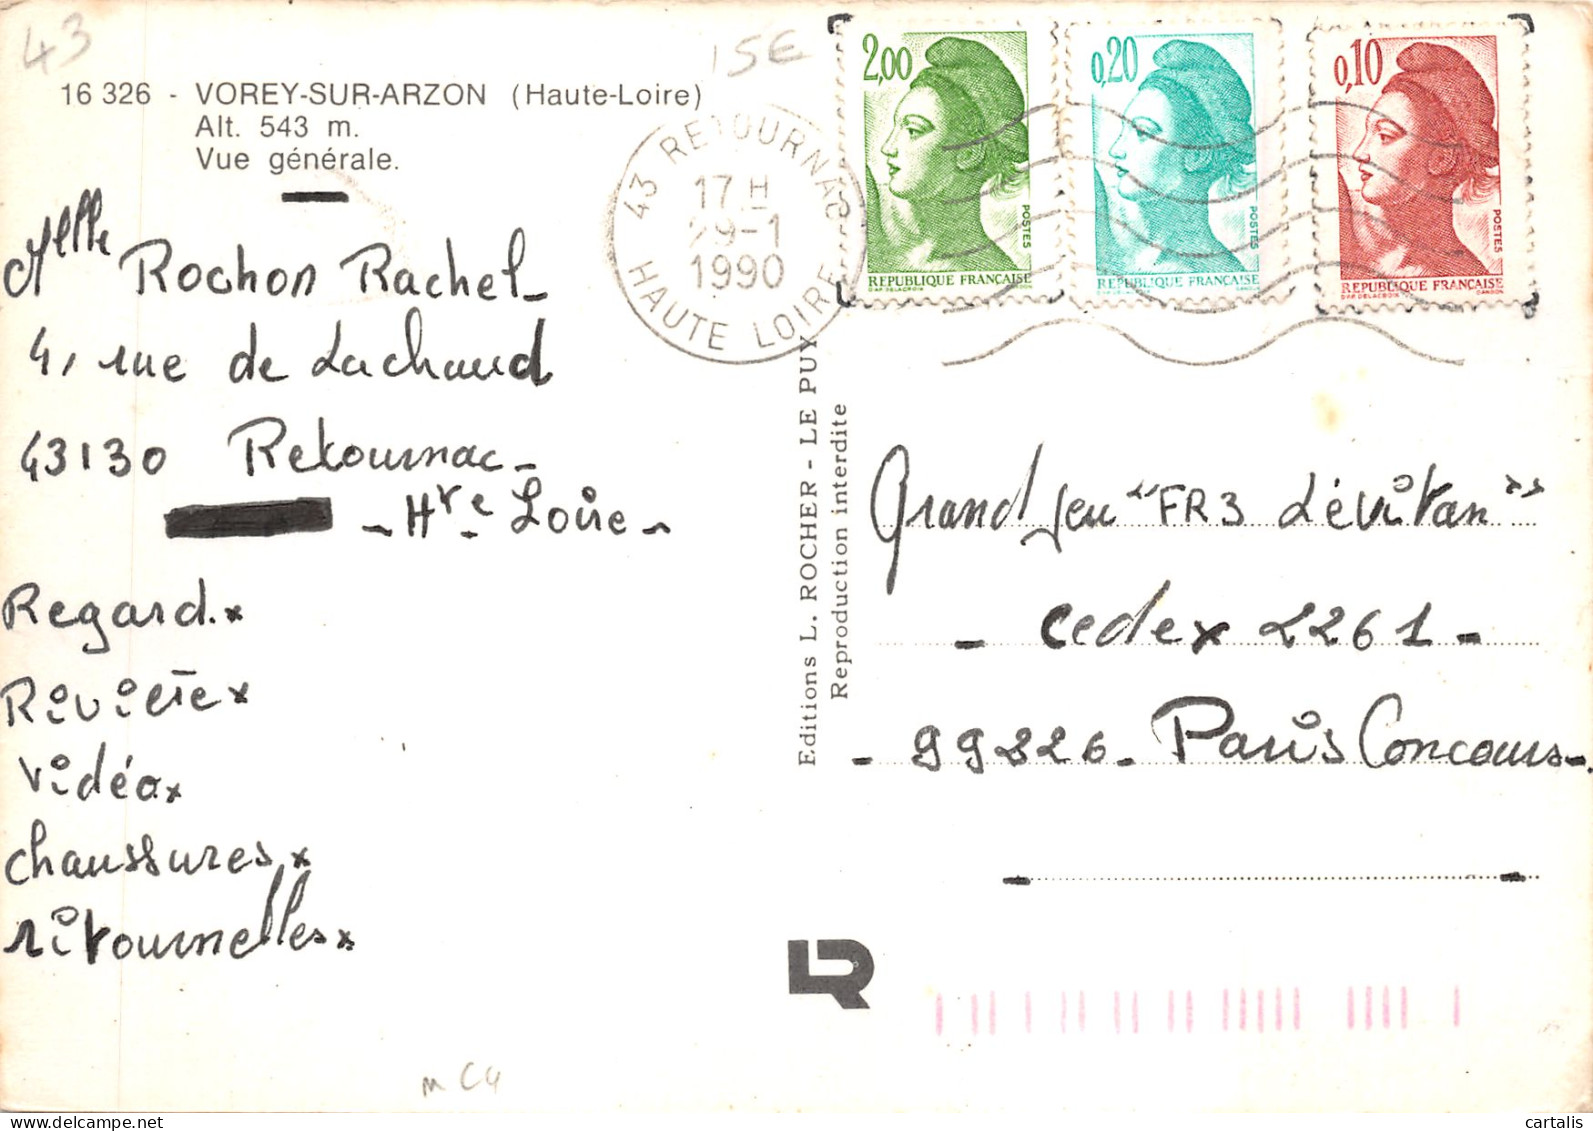 43
15€
16 326 - VOREY-SUR-ARZON (Haute-Loire)
Alt. 543 m.
Vue générale.
Mlle Rochon Rachel-
4, rue de Lachaud
43130 Retournac-
- Hre Loire -
Regard.x
Rivièrex
Vidéox
chaussures.x
ritournellesx
m C4
43 RETOURNAC
17 H
29-1
1990
HAUTE LOIRE
2,00
POSTES
REPUBLIQUE FRANÇAISE
D'AP. DELACROIX GANDON
0,20
POSTES
REPUBLIQUE FRANÇAISE
D'AP. DELACROIX GANDON
0,10
POSTES
REPUBLIQUE FRANÇAISE
D'AP. DELACROIX GANDON
Editions L. ROCHER - LE PUY
Reproduction interdite
Grand jeu "FR3 Lévitan"
- Cedex 2261 -
- 99226 - Paris Concours -
LR
cartalis